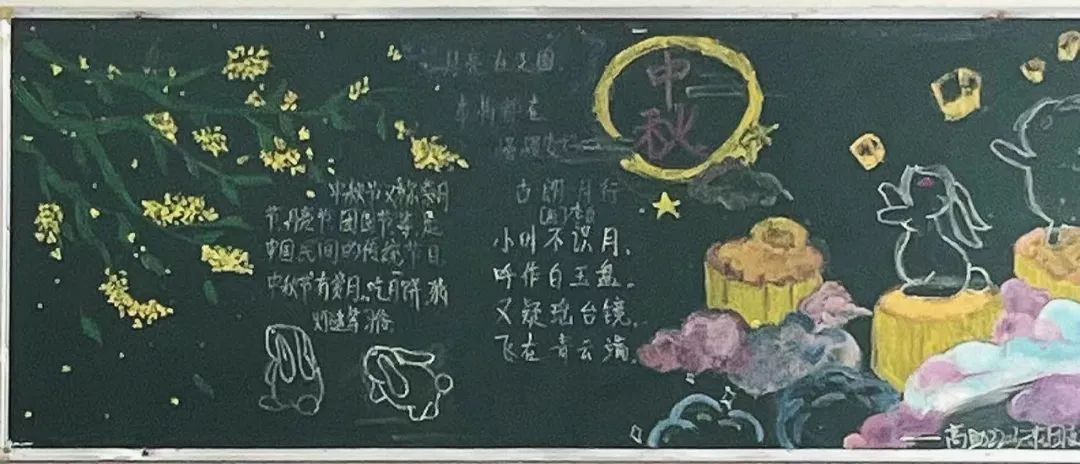 中秋
中秋节又称祭月
节、月亮节、团圆节等,是
中国民间的传统节日。
中秋节有赏月、吃月饼、猜
灯谜等习俗
古朗月行
[唐]李白
小时不识月,
呼作白玉盘。
又疑瑶台镜,
飞在青云端